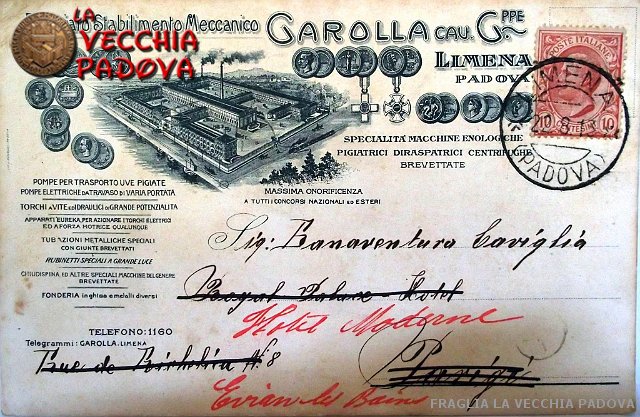 LA
VECCHIA
PADOVA
Stabilimento Meccanico
GAROLLA CAV. G.PPE
LIMENA
PADOVA
SPECIALITÀ MACCHINE ENOLOGICHE
PIGIATRICI DIRASPATRICI CENTRIFUGHE
BREVETTATE
MASSIMA ONORIFICENZA
A TUTTI I CONCORSI NAZIONALI ED ESTERI
POSTE ITALIANE
10
LIMENA
(PADOVA)
POMPE PER TRASPORTO UVE PIGIATE
POMPE ELETTRICHE DA TRAVASO DI VARIA PORTATA
TORCHI A VITE ED IDRAULICI DI GRANDE POTENZIALITA
APPARATI EUREKA, PER AZIONARE I TORCHI ELETTRICI
ED A FORZA MOTRICE QUALUNQUE
TUBAZIONI METALLICHE SPECIALI
CON GIUNTE BREVETTATI
RUBINETTI SPECIALI A GRANDE LUCE
CHIUDISPINA ED ALTRE SPECIALI MACCHINE DEL GENERE
BREVETTATE
FONDERIA in ghisa e metalli diversi
TELEFONO: 1160
Telegrammi: GAROLLA. LIMENA
Sig: Bonaventura Caviglia
Royal Palace Hotel
Hotel Moderne
Rue de Richelieu N. 8
Parigi
Evian les Bains
FRAGLIA LA VECCHIA PADOVA